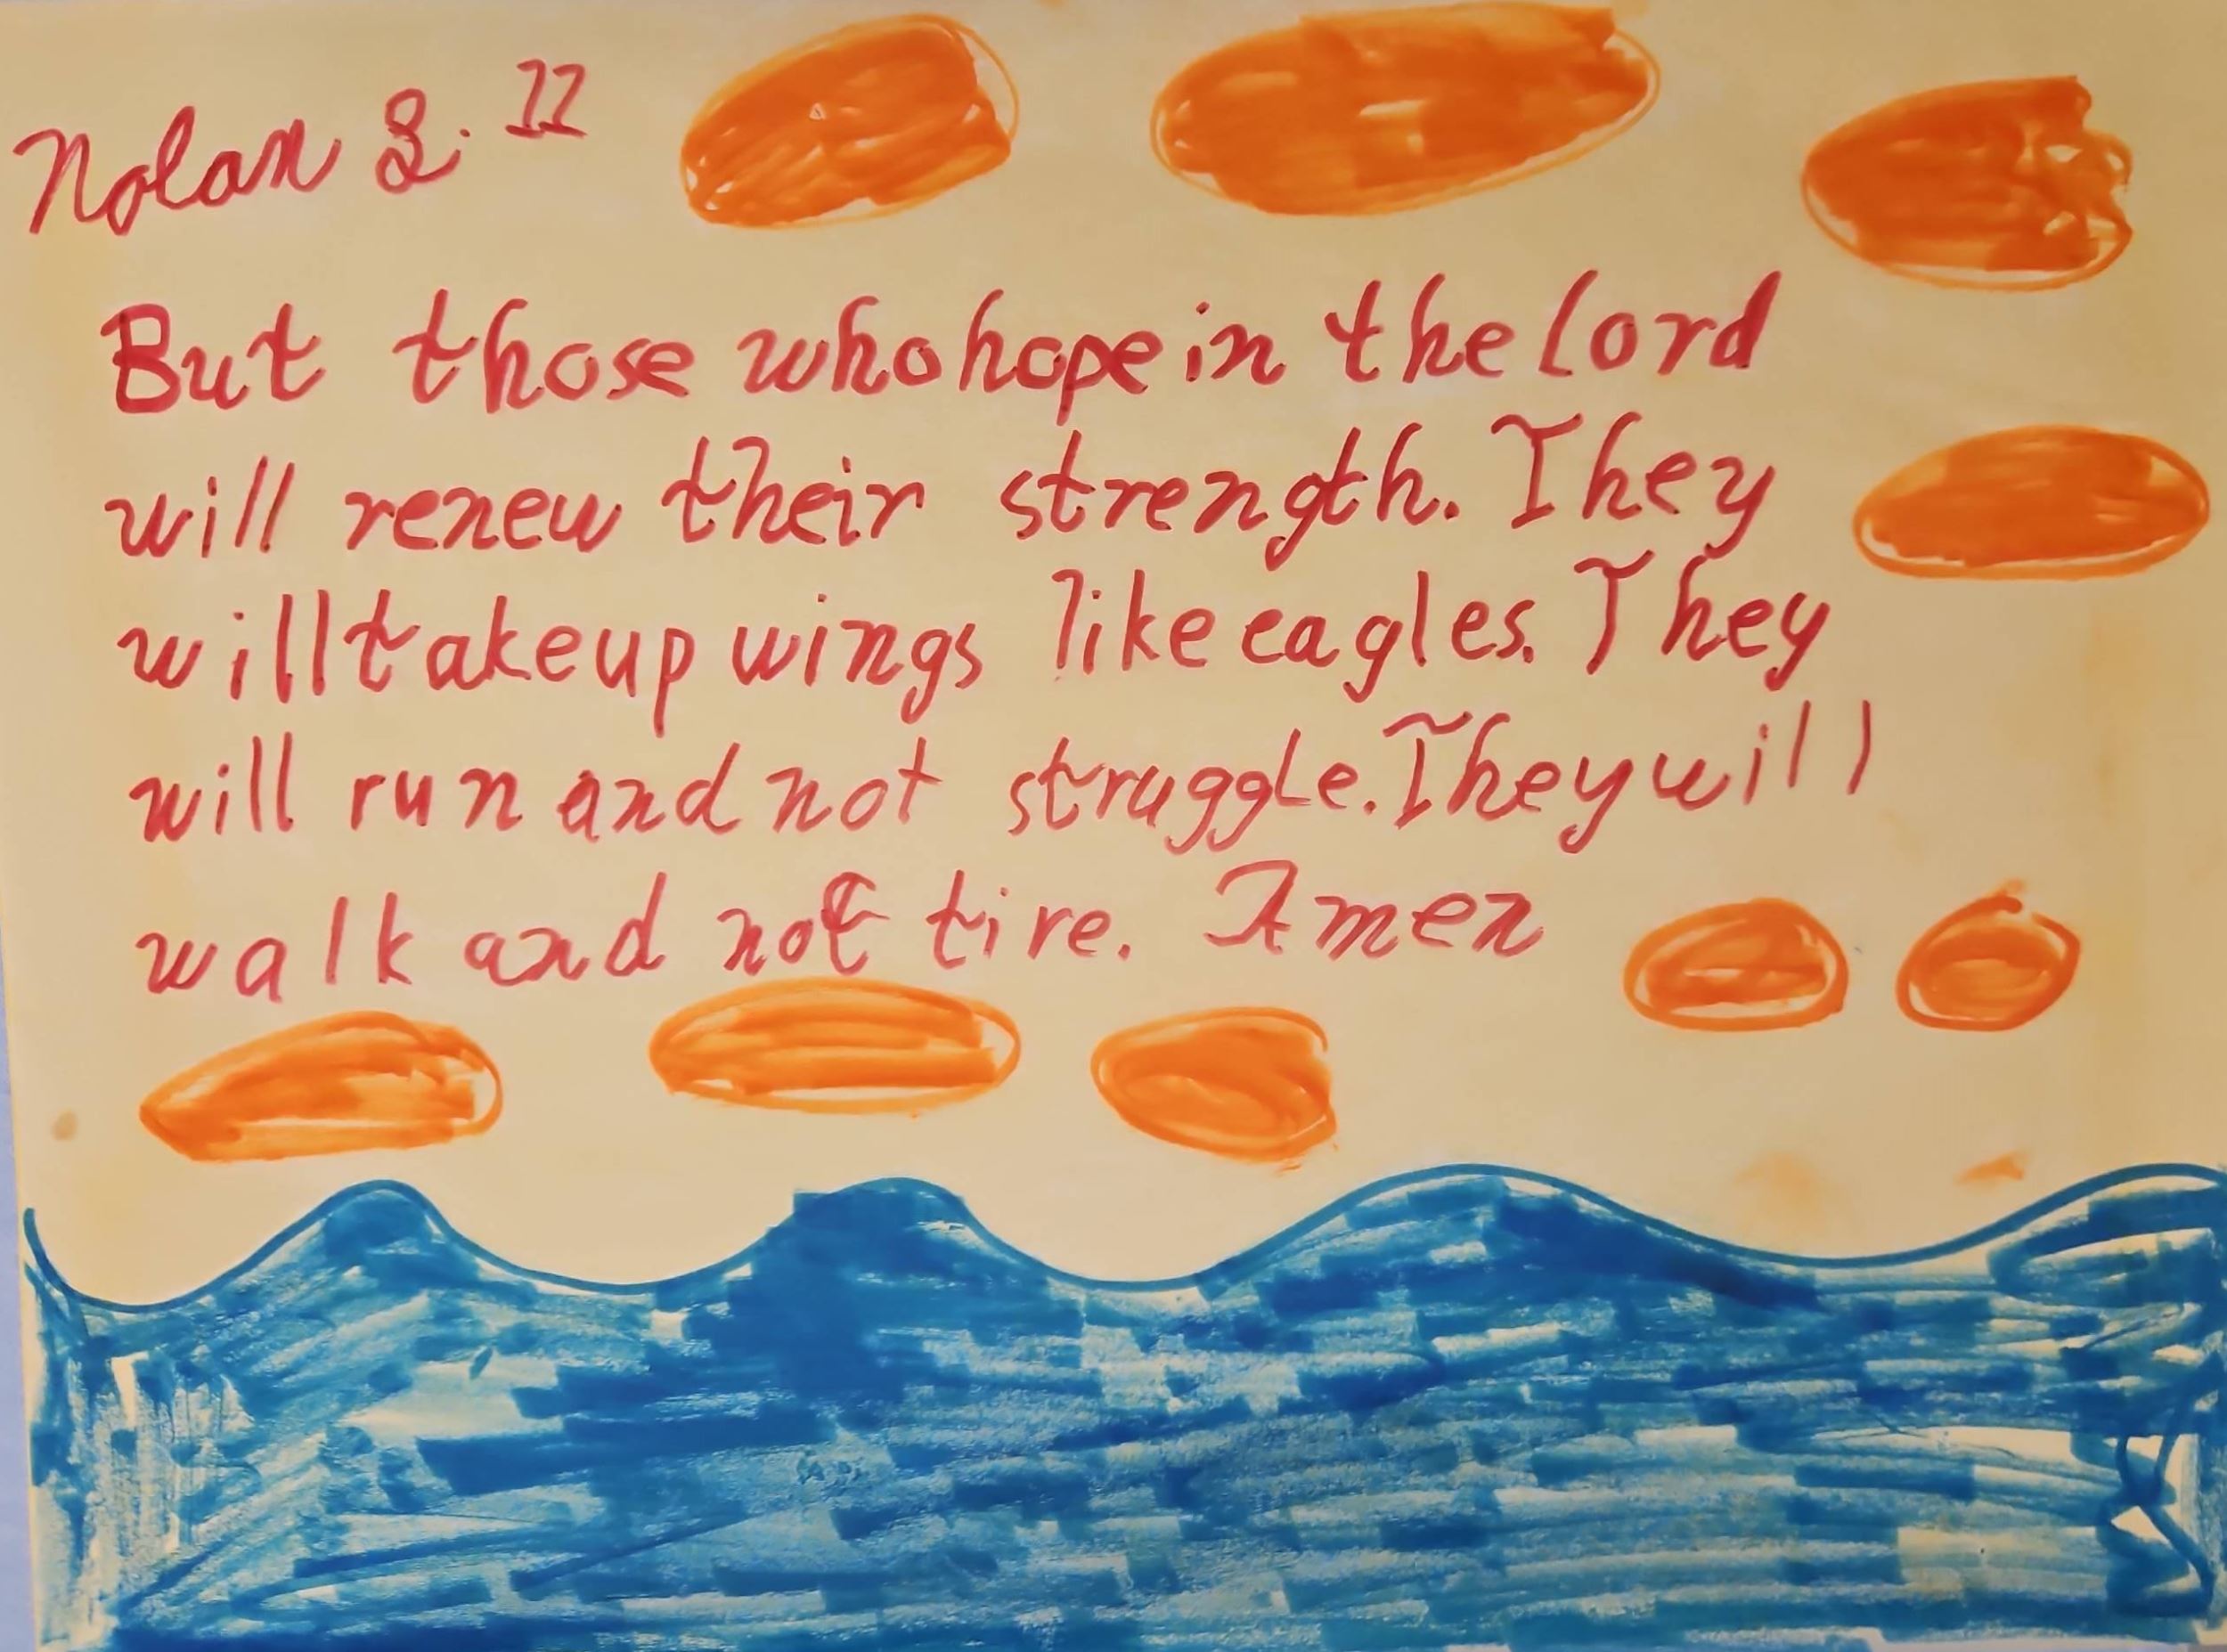 Nolan S. II
But those who hope in the lord
will renew their strength. They
will take up wings like eagles. They
will run and not struggle. They will
walk and not tire. Amen